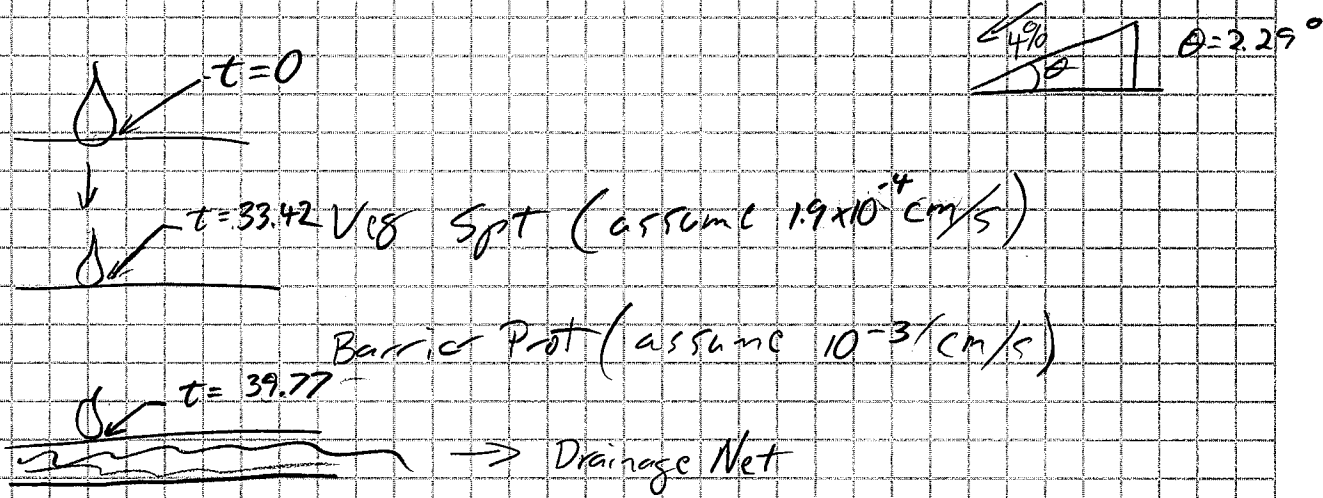 t=0
4%
θ
θ=2.29°
t=33.42 Veg Spt (assume 1.9x10^-4 cm/s)
Barrier Prot (assume 10^-3 cm/s)
t= 39.77
→ Drainage Net